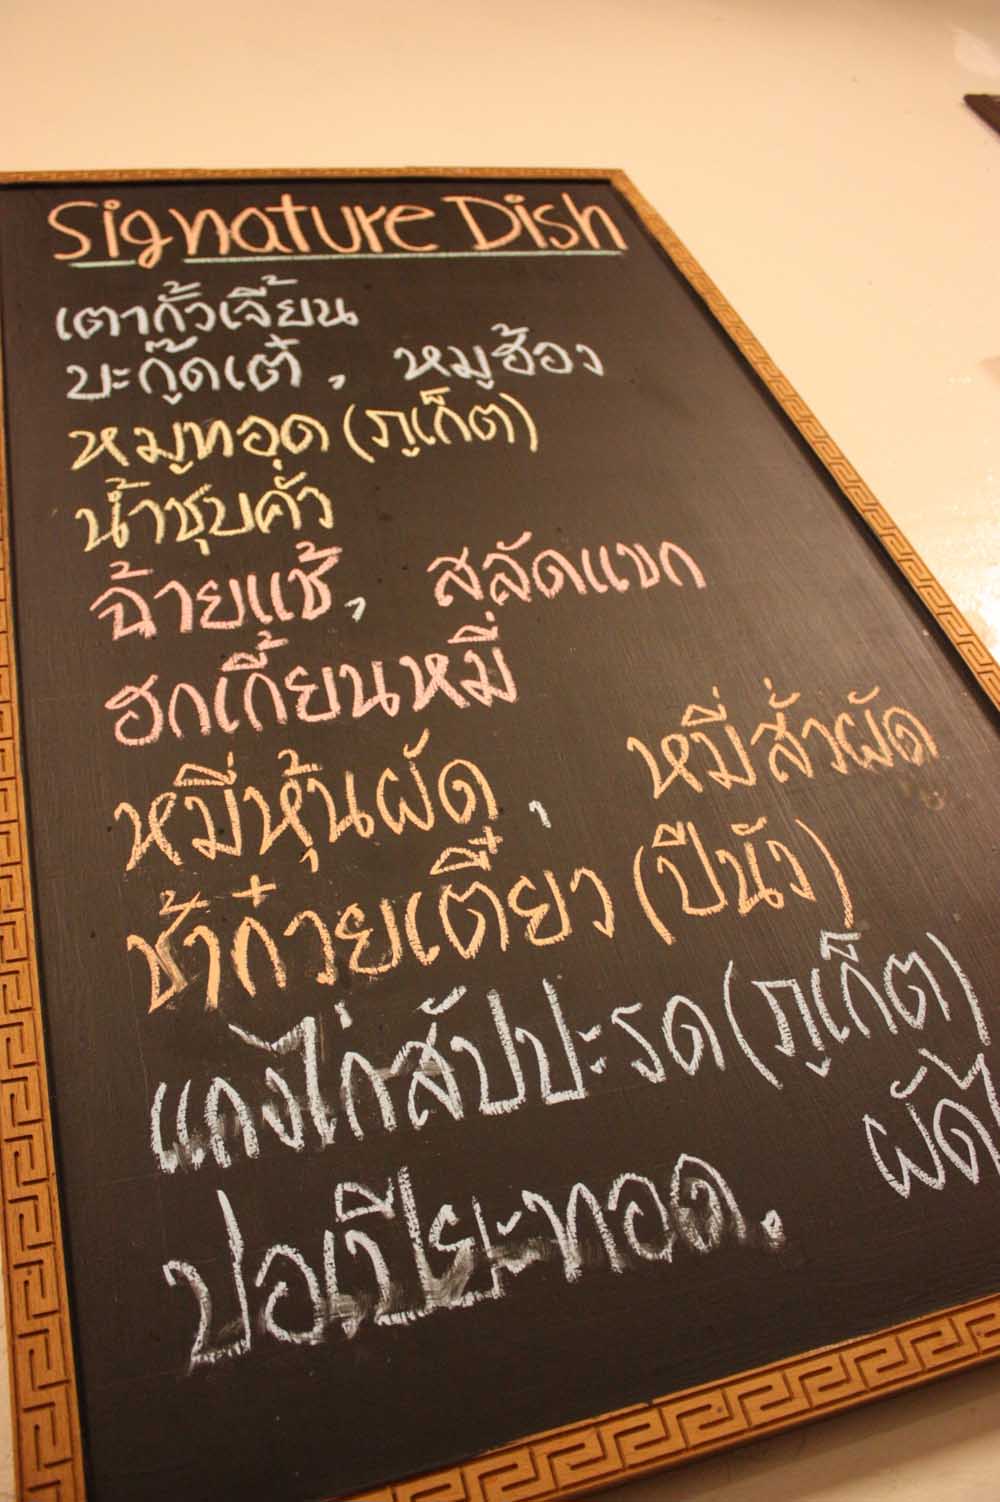 Signature Dish
เตากั้วเจี้ยน
บะกู๊ดเต๋ , หมูฮ้อง
หมูทอด (ภูเก็ต)
น้ำชุบคั่ว
ฉ้ายแช้, สลัดแขก
ฮกเกี้ยนหมี่
หมี่หุ้นผัด, หมี่สั่วผัด
ช้าก๋วยเตี๋ยว (ปีนัง)
แกงไก่สัปปะรด (ภูเก็ต)
ปอเปี๊ยะทอด. ผัดไ